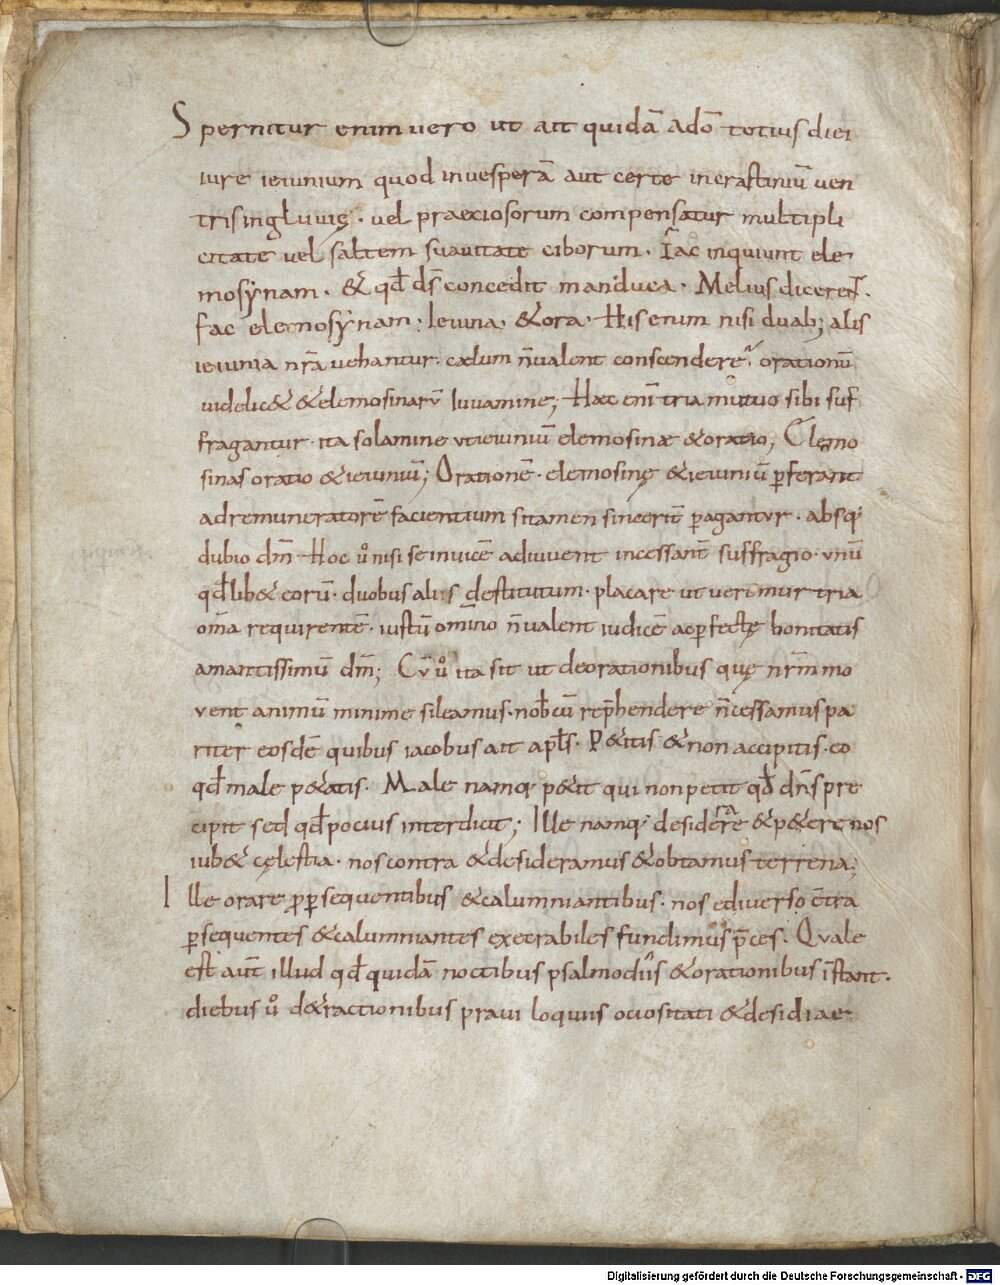 Spernitur enim vero ut ait quidā adō totius diei
iure ieiunium quod in vesperā aut certe in crastiniū ven
tris ingluviȩ · vel praeciosorum compensatur multipli
citate vel saltem suavitate ciborum · Fac inquiunt ele
mosẏnam · & qđ dſ concedit manduca · Melius dicerent ·
fac elemosẏnam · Ieiuna · & ora · His enim nisi duab; alis
ieiunia nrā vehantur · cœlum n̄ valent conscendere · orationū
videlic& & elemosinarū Iuvamine; Haec enī tria mutuo sibi suf
fragantur · ita solamine ut ieiuniū elemosinæ & oratio; Elemo
sinas oratio & ieiuniū; Orationē · elemosinȩ & ieiuniū ꝑferant
ad remuneratorē facientium si tamen sincerit̄ ꝑagantur · absq;
dubio dm̄ Hoc ů nisi se invicē adiuvent incessant̄ suffragio · unū
qđlib& eorū · duobus aliis destitutum · placare ut verimur tria
om̄a requirentē · iustū om̄ino n̄ valent iudicē ac ꝑfectȩ bonitatis
amantissimū dm̄; Cū ů ita sit ut de orationibus quȩ nr̄m mo
vent animū minime sileamus · nob̄cū rep̄hendere n̄ cessamus pa
riter eosdē quibus iacobus ait apłs · P&itis & non accipitis · eo
qđ male p&atis · Male namq; p&it qui non petit qđ dn̄s pre
cipit sed qđ pocius interdicit; Ille namq; desiderare & p&ere nos
iub& cȩlestia · nos contra & desideramus & obtamus terrena;
Ille orare ꝓ ꝑsequentibus & calumniantibus · nos e diverso c̄tra
ꝑsequentes & calumniantes execrabiles fundimus p̄ces · Quale
est aut̄ illud qđ quidā noctibus psalmodiis & orationibus īstant ·
diebus ů d&ractionibus pravi loquiis ociositati & desidiae
Digitalisierung gefördert durch die Deutsche Forschungsgemeinschaft - DFG